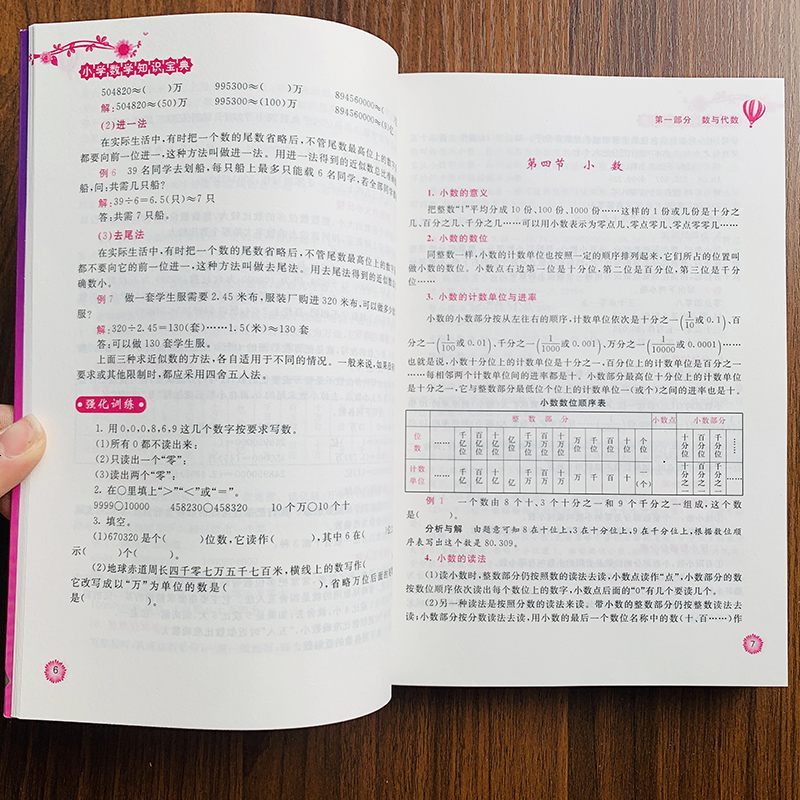 小学数学知识宝典
504820≈( )万 995300≈( )万 894560000≈( )
解:504820≈(50)万 995300≈(100)万 894560000≈(9)亿
(2)进一法
在实际生活中,有时把一个数的尾数省略后,不管尾数最高位上的数
都要向前一位进一,这种方法叫做进一法。用进一法得到的近似数总比准确
例6 39名同学去划船,每只船上最多只能载6名同学,若全部同学
船,问:共需几只船?
解:39÷6=6.5(只)≈7只
答:共需7只船。
(3)去尾法
在实际生活中,有时把一个数的尾数省略后,不管尾数最高位上的数
都不要向它的前一位进一,这种方法叫做去尾法。用去尾法得到的近似数总
确数小。
例7 做一套学生服需要2.45米布,服装厂购进320米布,可以做多少
服?
解:320÷2.45=130(套)……1.5(米)≈130套
答:可以做130套学生服。
上面三种求近似数的方法,各自适用于不同的情况。一般来说,如果没有
要求或其他限制时,都应采用四舍五入法。
强化训练
1. 用0、0、0、8、6、9这几个数字按要求写数。
(1)所有0都不读出来:
(2)只读出一个“零”:
(3)读出两个“零”:
2. 在○里填上“>”“<”或“=”。
9999○10000 458230○458320 10个万○10个十
3. 填空。
(1)670320是个( )位数,它读作( ),其中6在( )
示( )个( )。
(2)地球赤道周长四千零七万五千七百米,横线上的数写作(
它改写成以“万”为单位的数是( ),省略万位后面的
是( )。
6
第一部分 数与代数
第四节 小数
1. 小数的意义
把整数“1”平均分成10份、100份、1000份……这样的1份或几份是十分之
几、百分之几、千分之几……可以用小数表示为零点几、零点零几、零点零零几……
2. 小数的数位
同整数一样,小数的计数单位也按照一定的顺序排列起来,它们所占的位置叫
做小数的数位。小数点右边第一位是十分位,第二位是百分位,第三位是千分
位……
3. 小数的计数单位与进率
小数的小数部分按从左往右的顺序,计数单位依次是十分之一(1/10或0.1)、百
分之一(1/100或0.01)、千分之一(1/1000或0.001)、万分之一(1/10000或0.0001)……
也就是说,小数十分位上的计数单位是十分之一,百分位上的计数单位是百分之一
……每相邻两个计数单位间的进率都是十。小数部分最高位十分位上的计数单位
是十分之一,它与整数部分最低位个位上的计数单位一(或个)之间的进率也是十。
小数数位顺序表
整数部分 小数点 小数部分
位数 …… 千亿位 百亿位 十亿位 亿位 千万位 百万位 十万位 万位 千位 百位 十位 个位 . 十分位 百分位 千分位 ……
计数单位 …… 千亿 百亿 十亿 亿 千万 百万 十万 万 千 百 十 一(个) 十分之一 百分之一 千分之一 ……
例1 一个数由8个十、3个十分之一和9个千分之一组成,这个数
是( )。
分析与解 由题意可知8在十位上,3在十分位上,9在千分位上,根据数位顺
序表写出这个数是80.309。
4. 小数的读法
(1)读小数时,整数部分仍按照数的读法去读,小数点读作“点”,小数部分的数
按数位顺序依次读出每个数位上的数字,小数点后面的“0”有几个要读几个。
(2)另一种读法是按照分数的读法来读。带小数的整数部分仍按整数读法去
读;小数部分按分数读法去读,用小数的最后一个数位名称中的数(十、百……)作
7